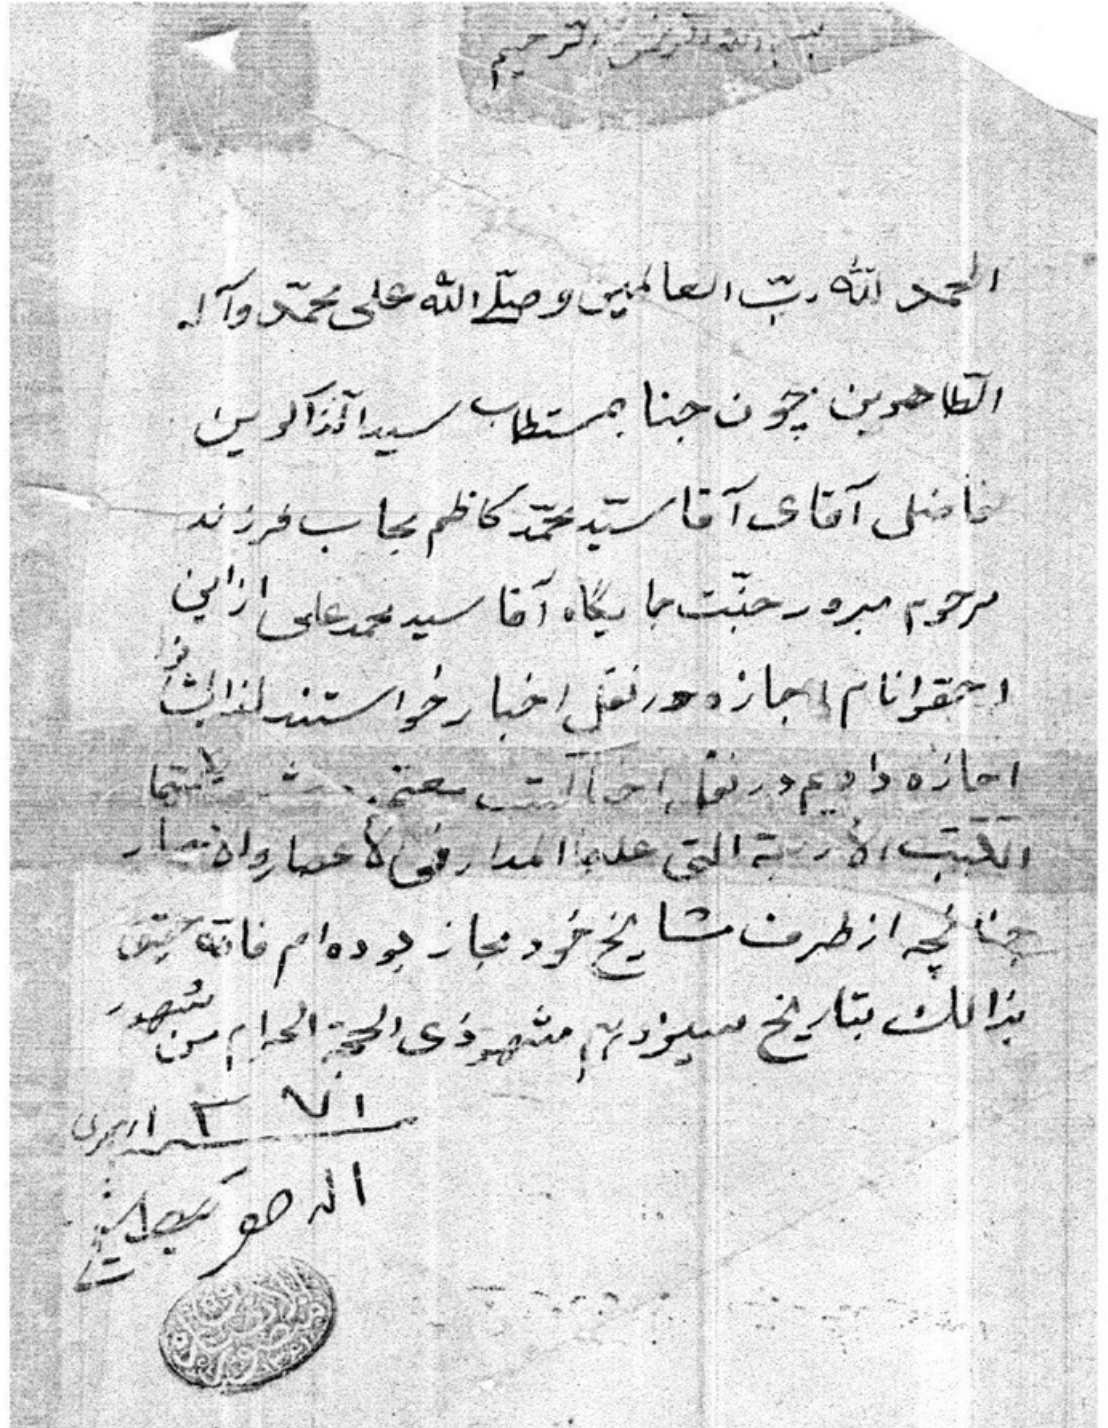 بسم الله الرحمن الرحیم
الحمد لله ربّ العالمین وصلّی الله علی محمّد وآله
الطّاهرین چون جناب مستطاب سیدالذّاکرین
فاضل آقای آقا سیّد محمّد کاظم حجاب فرزند
مرحوم مبرور جنّت جایگاه آقا سید محمد علی از این
احقر انام اجازه در نقل اخبار خواستند لذا
اجازه دادیم در نقل از کتب معتبره
الکتب الأربعة التی علیها المدار فی الأعصار والأمصار
چنانچه از طرف مشایخ خود مجاز بوده‌ام فانّه حقیق
بذالک بتاریخ سیزدهم شهر ذی الحجة الحرام من شهور
۱۳۷۱ هجری
الاحقر